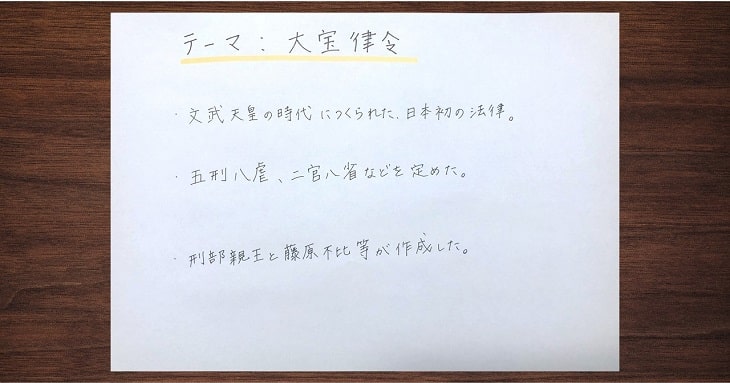 テーマ：大宝律令
・文武天皇の時代につくられた、日本初の法律。
・五刑八虐、二官八省などを定めた。
・刑部親王と藤原不比等が作成した。